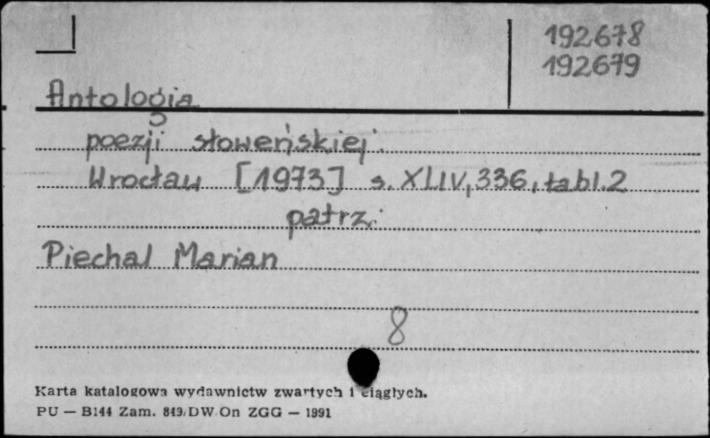 192678
192679
Antologia
poezji słoweńskiej.
Wrocław [1973] s. XLIV, 336, tabl. 2
patrz:
Piechal Marian
8
Karta katalogowa wydawnictw zwartych i ciągłych.
PU — B144 Zam. 849/DW On ZGG — 1991